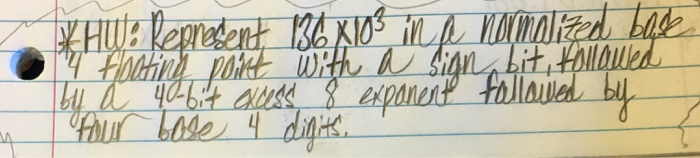 *HW: Represent 136 X10³ in a normalized base
4 floating point with a sign bit, followed
by a 4-bit excess 8 exponent followed by
four base 4 digits.